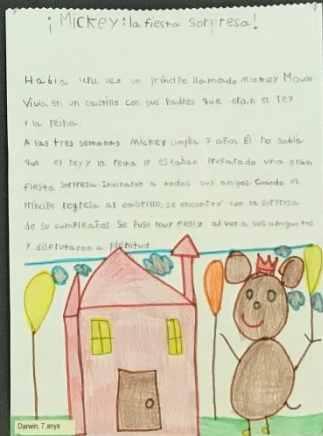 ¡Mickey: la fiesta sorpresa!
Había una vez un príncipe llamado Mickey Mouse.
Vivía en un castillo con sus padres que eran el rey
y la reina.
A las tres semanas Mickey cumplía 7 años Él no sabía
que el rey y la reina le estaban preparado una gran
fiesta sorpresa Invitaron a todos sus amigos. Cuando el
príncipe regresa al castillo, se encontró con la sorpresa
de su cumpleaños. Se puso muy feliz al ver a sus amiguitos
y disfrutaron a plenitud
Darwin, 7 anys